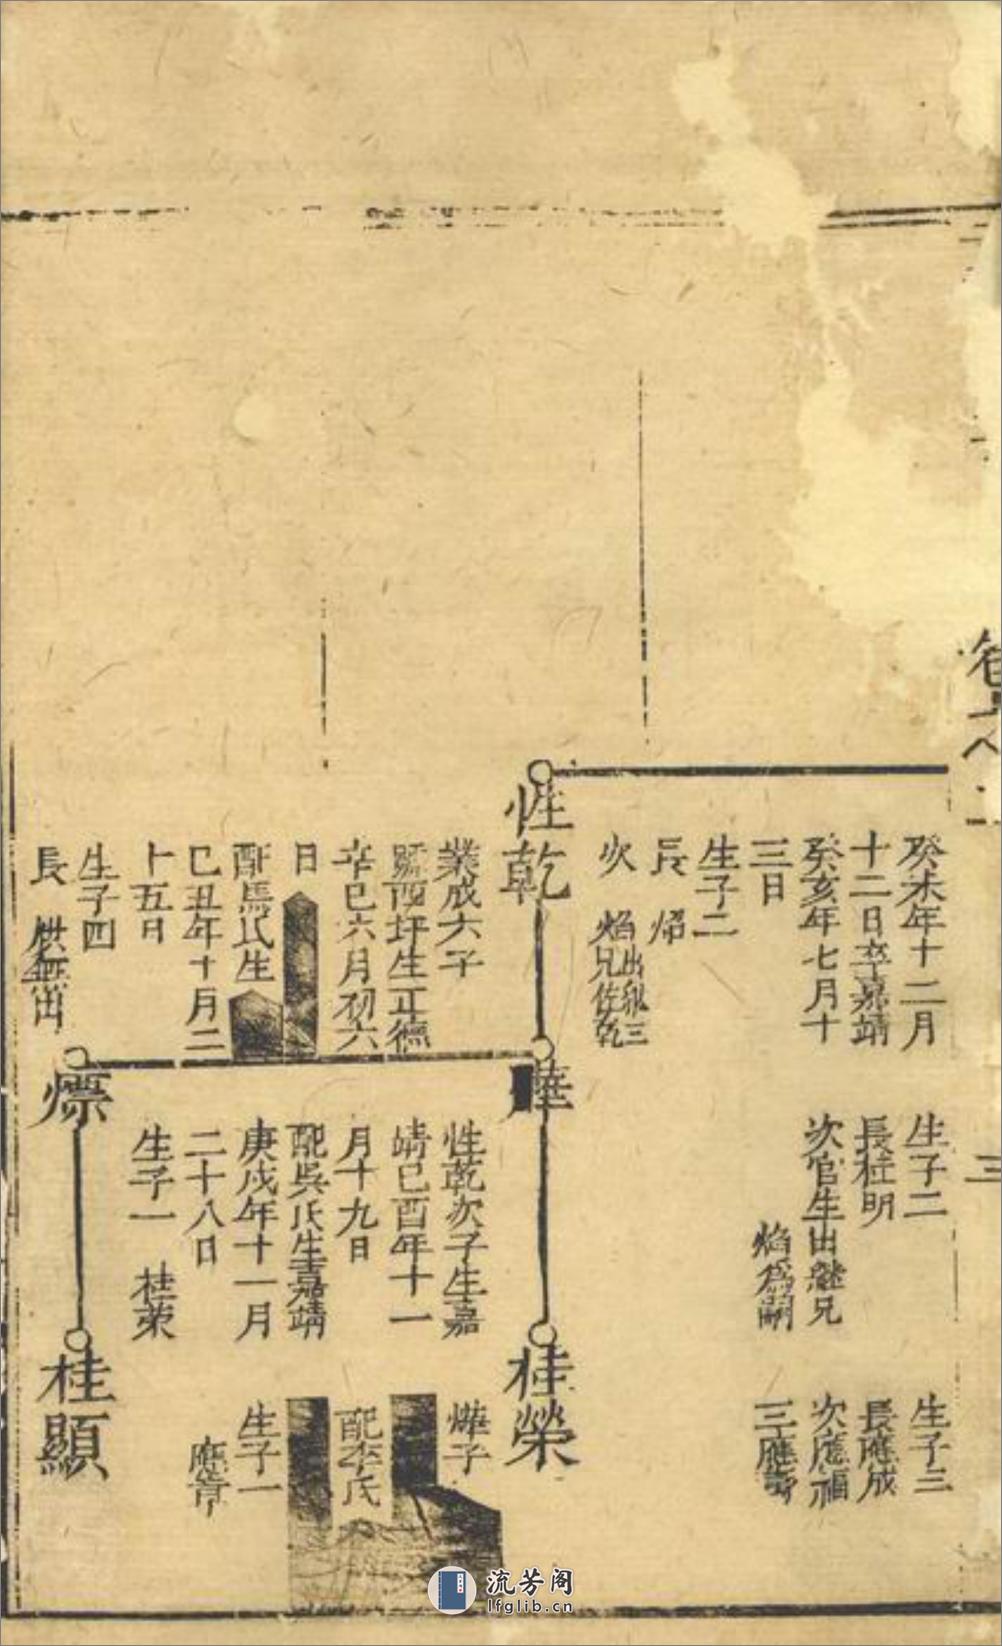 癸未年十二月
十二日卒嘉靖
癸亥年七月十
三日
生子二
長
次 焰出繼三
兄佐乾
生子二
長桂明
次官生出繼兄
焰為嗣
生子三
長應成
次應福
三應壽
性乾
業成六子
驪西坪生正德
辛巳六月初六
日
配馬氏生
己丑年十月二
十五日
生子四
長
燁
性乾次子生嘉
靖己酉年十一
月十九日
配吳氏生嘉靖
庚戌年十一月
二十八日
生子一 桂荣
桂榮
燁子
配李氏
生子一
熛
桂顯
三
流芳阁
lfglib.cn